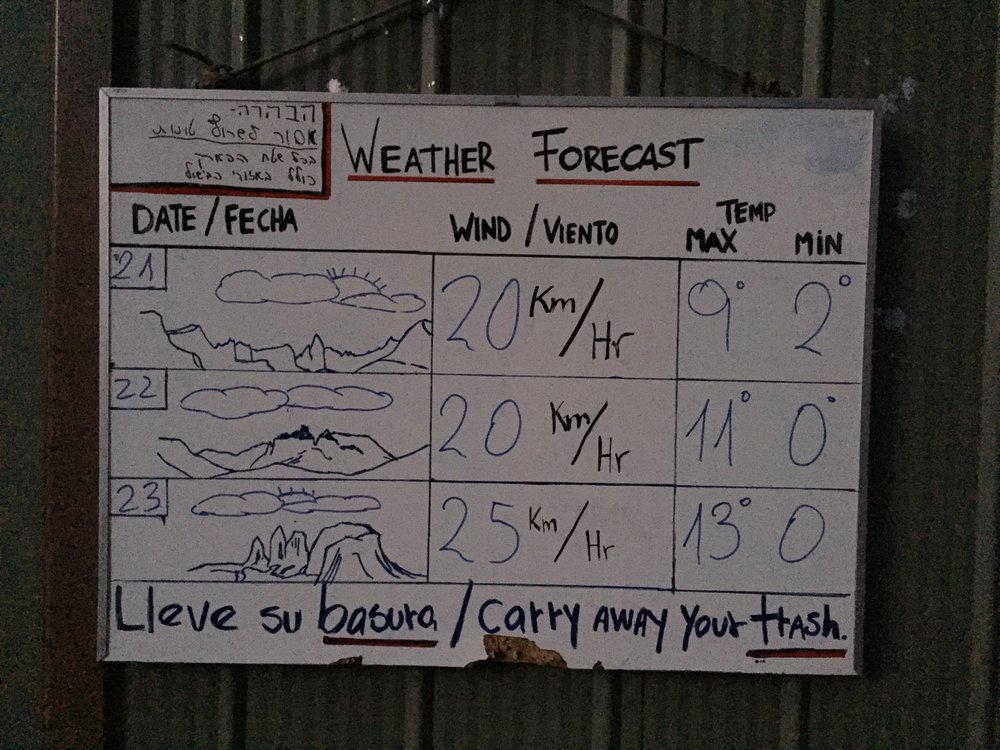 הבהרה-
אסור לשרוף
בכל שטח הפארק
כולל באזורי הבישול
WEATHER FORECAST
DATE / FECHA
WIND / VIENTO
TEMP
MAX MIN
21 20 Km/Hr 9° 2°
22 20 Km/Hr 11° 0°
23 25 Km/Hr 13° 0
Lleve su basura / Carry AWAY Your trash.